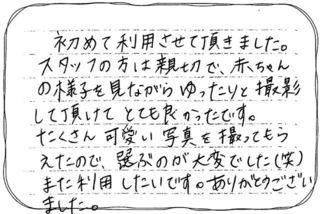 初めて利用させて頂きました。
スタッフの方は親切で、赤ちゃん
の様子を見ながらゆったりと撮影
して頂けてとても良かったです。
たくさん可愛い写真を撮ってもら
えたので、選ぶのが大変でした(笑)
また利用したいです。ありがとうござい
ました。